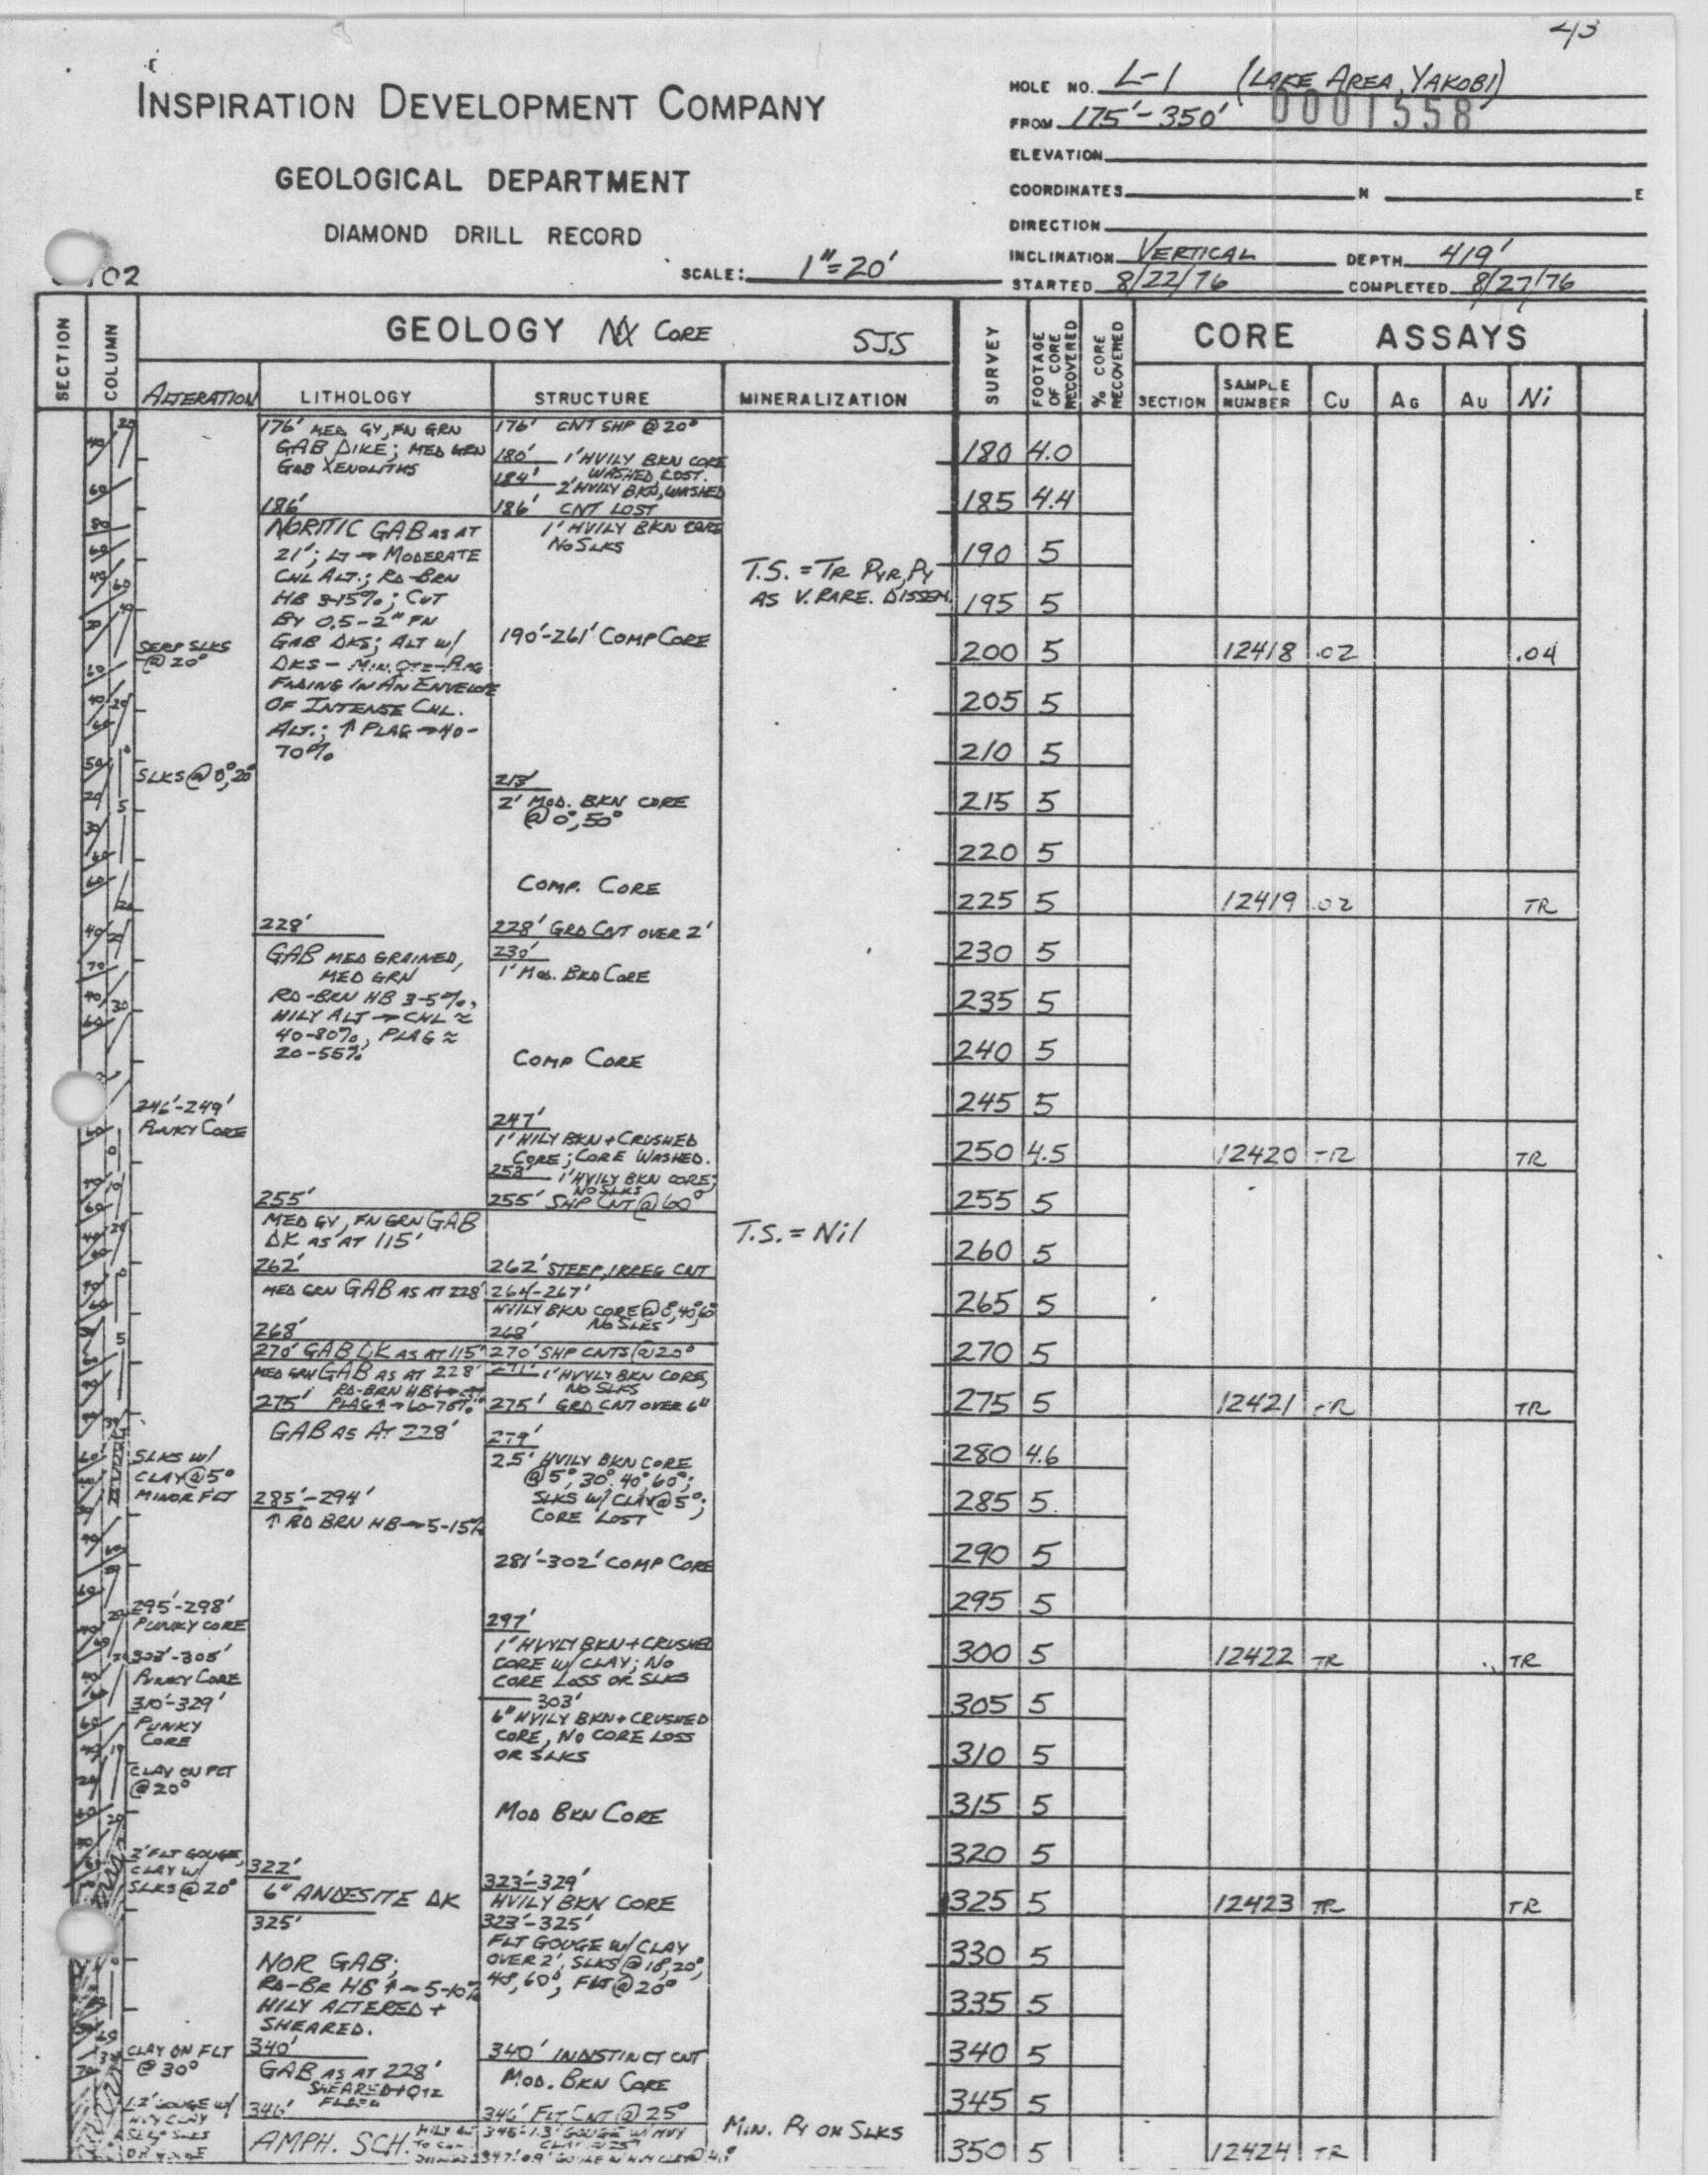 43
INSPIRATION DEVELOPMENT COMPANY
GEOLOGICAL DEPARTMENT
DIAMOND DRILL RECORD
02
SCALE: 1"=20'
HOLE NO. L-1 (LAKE AREA, YAKOBI)
0001558
FROM 175'-350'
ELEVATION
COORDINATES N E
DIRECTION
INCLINATION VERTICAL DEPTH 419'
STARTED 8/22/76 COMPLETED 8/27/76
SECTION
COLUMN
GEOLOGY NX CORE SJS
ALTERATION LITHOLOGY STRUCTURE MINERALIZATION
SURVEY
FOOTAGE OF CORE RECOVERED
% CORE RECOVERED
CORE ASSAYS
SECTION SAMPLE NUMBER CU AG AU Ni
SERP SLKS
@ 20°
SLKS @ 0°, 20°
246'-249'
PUNKY CORE
SLKS W/
CLAY @ 5°
MINOR FLT
295'-298'
PUNKY CORE
303'-305'
PUNKY CORE
310'-329'
PUNKY
CORE
CLAY ON FCT
@ 20°
2' FLT GOUGE,
CLAY W/
SLKS @ 20°
CLAY ON FLT
@ 30°
1.2' GOUGE W/
HVY CLAY
176' MED GY, FN GRN
GAB DIKE; MED GRN
GAB XENOLITHS
186'
NORITIC GAB AS AT
21'; LT → MODERATE
CHL ALT.; RD-BRN
HB 3-15%; CUT
BY 0.5-2" FN
GAB DKS; ALT W/
DKS - MIN. QTZ-PLAG
FLDING IN AN ENVELOPE
OF INTENSE CHL.
ALT.; ↑ PLAG → 40-
70%
228'
GAB MED GRAINED,
MED GRN
RD-BRN HB 3-5%,
HILY ALT → CHL ≈
40-80%, PLAG ≈
20-55%
255'
MED GY, FN GRN GAB
DK AS AT 115'
262'
MED GRN GAB AS AT 228'
268'
270' GAB DK AS AT 115'
MED GRN GAB AS AT 228'
RD-BRN HB
275' PLAG ↑ → 60-70%
GAB AS AT 228'
285'-294'
↑ RD BRN HB → 5-15%
322'
6" ANDESITE DK
325'
NOR GAB;
RD-BR HB ↑ → 5-10%
HILY ALTERED +
SHEARED.
340'
GAB AS AT 228'
SHEARED + QTZ
346'
AMPH. SCH.
176' CNT SHP @ 20°
180' 1' HVILY BKN CORE
WASHED, LOST.
184' 2' HVILY BKN, WASHED
186' CNT LOST
1' HVILY BKN CORE
NO SLKS
190'-261' COMP CORE
213'
2' MOD. BKN CORE
@ 0°, 50°
COMP. CORE
228' GRD CNT OVER 2'
230'
1' MOD. BKD CORE
COMP CORE
247'
1' HILY BKN + CRUSHED
CORE; CORE WASHED.
253' 1' HVILY BKN CORE;
NO SLKS
255' SHP CNT @ 60°
262' STEEP, IRREG CNT
264-267'
HVILY BKN CORE @ 0°, 40°, 60°
NO SLKS
268'
270' SHP CNTS @ 20°
271' 1' HVYLY BKN CORE,
NO SLKS
275' GRD CNT OVER 6"
279'
2.5' HVILY BKN CORE
@ 5°, 30°, 40°, 60°;
SLKS W/ CLAY @ 5°;
CORE LOST
281'-302' COMP CORE
297'
1' HVYLY BKN + CRUSHED
CORE W/ CLAY; NO
CORE LOSS OR SLKS
303'
6" HVILY BKN + CRUSHED
CORE, NO CORE LOSS
OR SLKS
MOD BKN CORE
323'-329'
HVILY BKN CORE
323'-325'
FLT GOUGE W/ CLAY
OVER 2', SLKS @ 18°, 20°,
40°, 60°, FLT @ 20°
340' INDISTINCT CNT
MOD. BKN CORE
346' FLT CNT @ 25°
346'-1.3' GOUGE W/ HVY
CLAY @ 25°
347' 0.9' GOUGE W/ HVY CLAY @
T.S. = TR PYR, PY
AS V. RARE. DISSEM.
T.S. = Nil
MIN. PY ON SLKS
180 4.0
185 4.4
190 5
195 5
200 5 12418 .02 .04
205 5
210 5
215 5
220 5
225 5 12419 .02 TR
230 5
235 5
240 5
245 5
250 4.5 12420 TR TR
255 5
260 5
265 5
270 5
275 5 12421 TR TR
280 4.6
285 5
290 5
295 5
300 5 12422 TR TR
305 5
310 5
315 5
320 5
325 5 12423 TR TR
330 5
335 5
340 5
345 5
350 5 12424 TR